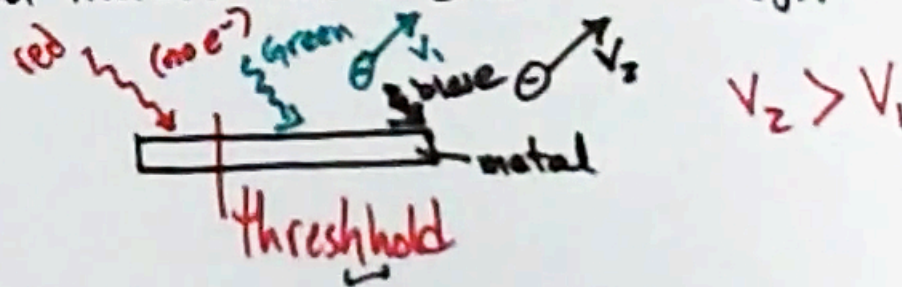 red (no e⁻) Green V₁
blue V₂
V₂ > V₁
metal
threshhold